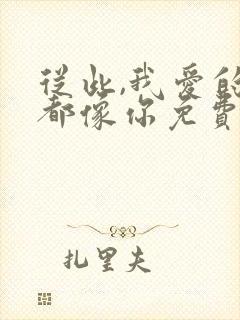 從此,我愛的
都像你免費
扎里夫